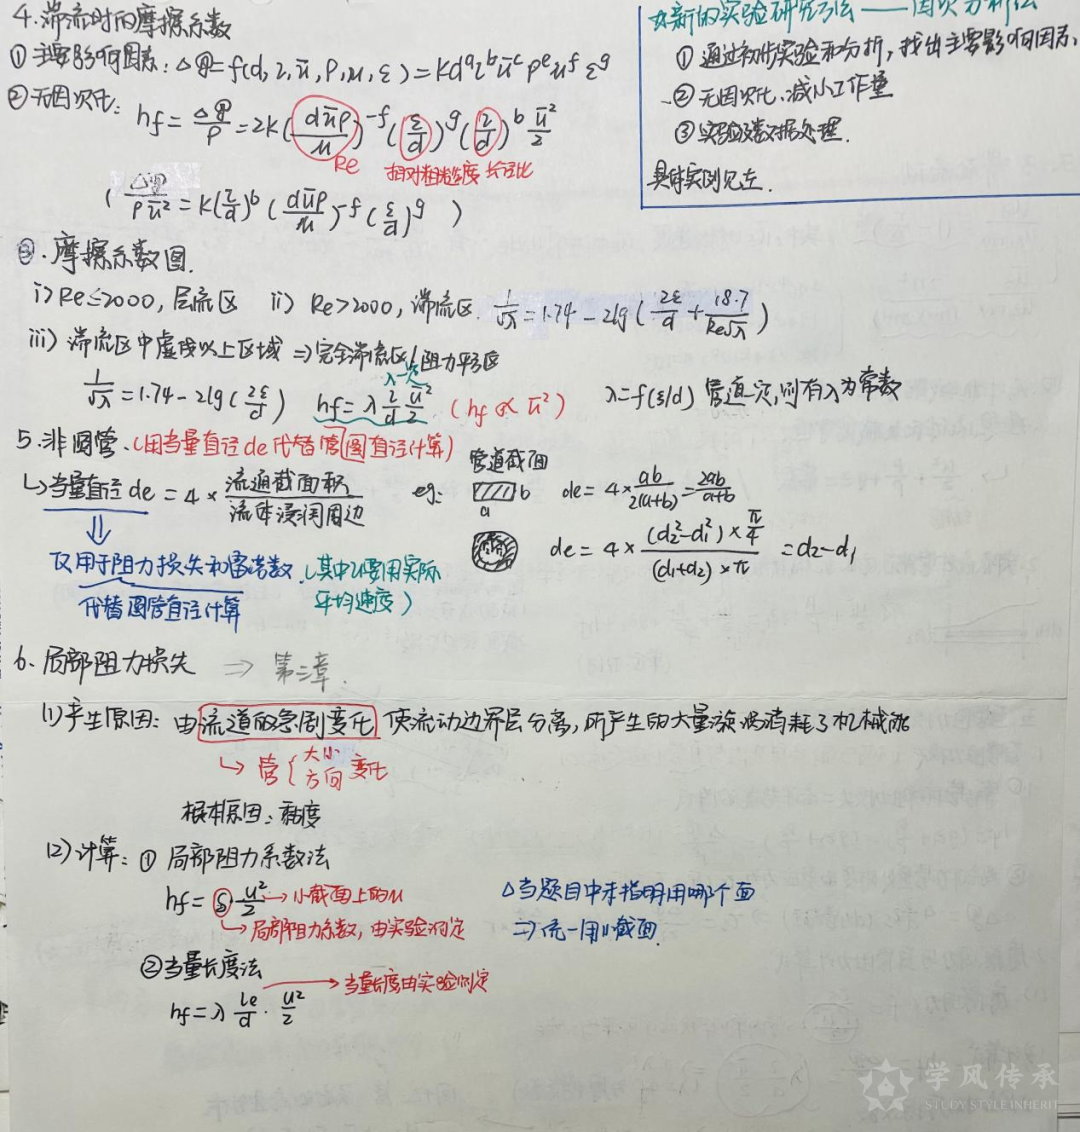 4.湍流时的摩擦系数
①主要影响因素:△𝒫=f(d,l,ū,ρ,μ,ε)=Kd^a l^b ū^c ρ^e μ^f ε^g
②无因次化: hf=△𝒫/ρ=2K(dūρ/μ)^-f (ε/d)^g (l/d)^b ū²/2
Re 相对粗糙度 长径比
(△𝒫/ρū²=K(l/d)^b (dūρ/μ)^-f (ε/d)^g )
☆新的实验研究方法——因次分析法
①通过初步实验和分析,找出主要影响因素,
②无因次化,减小工作量
③实验及数据处理.
具体实例见左.
③.摩擦系数图.
i)Re≤2000,层流区 ii) Re>2000,湍流区. 1/√λ=1.74-2lg(2ε/d+18.7/Re√λ)
iii)湍流区中虚线以上区域⇒完全湍流区/阻力平方区
λ一定
1/√λ=1.74-2lg(2ε/d) hf=λ l/d ū²/2 (hf∝ū²) λ=f(ε/d) 管道一定,则有λ为常数
5.非圆管.(用当量直径de代替管圆直径计算)
管道截面
↳当量直径de=4×流通截面积/流体浸润周边 eg. a b de=4×ab/2(a+b)=2ab/a+b
de=4×(d₂²-d₁²)×π/4/(d₁+d₂)×π=d₂-d₁
⇓
仅用于阻力损失和雷诺数.(其中ū要用实际平均速度)
代替圆管直径计算
6.局部阻力损失 ⇒ 第三章.
(1)产生原因:由流道的急剧变化使流动边界层分离,所产生的大量漩涡消耗了机械能
↳管{大小 方向 变化
根本原因:黏度
(2)计算:①局部阻力系数法
hf=ζ·u²/2→小截面上的u
↳局部阻力系数,由实验测定
△当题目中未指明用哪个面
⇒统一用小截面.
②当量长度法
→当量长度由实验测定
hf=λ le/d·u²/2
学风传承
STUDY STYLE INHERIT